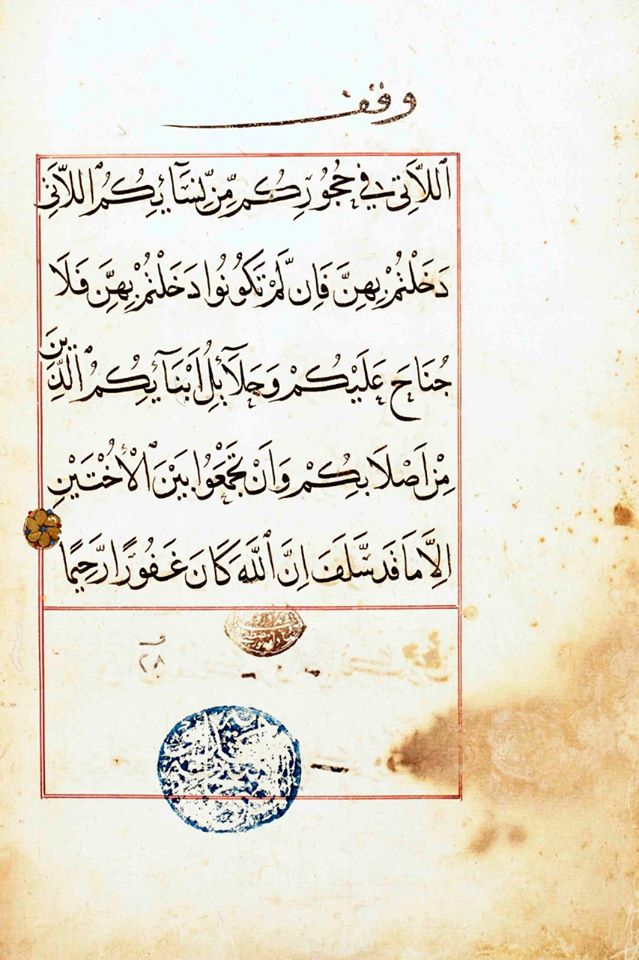 وقف
ٱللَّاتِى فِى حُجُورِكُم مِّن نِّسَآئِكُمُ ٱللَّاتِى
دَخَلْتُمْ بِهِنَّ فَاِن لَّمْ تَكُونُوا دَخَلْتُمْ بِهِنَّ فَلَا
جُنَاحَ عَلَيْكُمْ وَحَلَآئِلُ اَبْنَآئِكُمُ ٱلَّذِينَ
مِنْ اَصْلَابِكُمْ وَاَنْ تَجْمَعُوا بَيْنَ ٱلْاُخْتَيْنِ
اِلَّا مَا قَد سَّلَفَ اِنَّ ٱللَّهَ كَانَ غَفُورًا رَّحِيمًا